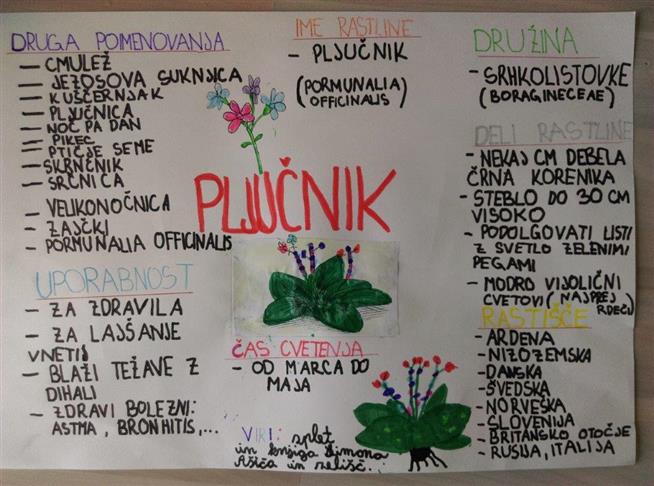 DRUGA POIMENOVANJA
— CMULEŽ
— JEZUSOVA SUKNJICA
— KUŠČERNJAK
— PLJUČNICA
— NOČ PA DAN
— PIKEC
— PTIČJE SEME
— SKRNČNIK
— SRČNICA
— VELIKONOČNICA
— ZAJČKI
— PORMUNALIA OFFICINALIS
UPORABNOST
— ZA ZDRAVILA
— ZA LAJŠANJE
VNETIJ
— BLAŽI TEŽAVE Z
DIHALI
— ZDRAVI BOLEZNI:
ASTMA, BRONHITIS,...
IME RASTLINE
— PLJUČNIK
(PORMUNALIA
OFFICINALIS)
PLJUČNIK
ČAS CVETENJA
— OD MARCA DO
MAJA
VIRI: splet
in knjiga Simona
Ašiča in zelišč.
DRUŽINA
— SRHKOLISTOVKE
(BORAGINECEAE)
DELI RASTLINE
— NEKAJ CM DEBELA
ČRNA KORENIKA
— STEBLO DO 30 CM
VISOKO
— PODOLGOVATI LISTI
Z SVETLO ZELENIMI
PEGAMI
— MODRO VIJOLIČNI
CVETOVI (NAJPREJ
RDEČI)
RASTIŠČE
— ARDENA
— NIZOZEMSKA
— DANSKA
— ŠVEDSKA
— NORVEŠKA
— SLOVENIJA
— BRITANSKO OTOČJE
— RUSIJA, ITALIJA